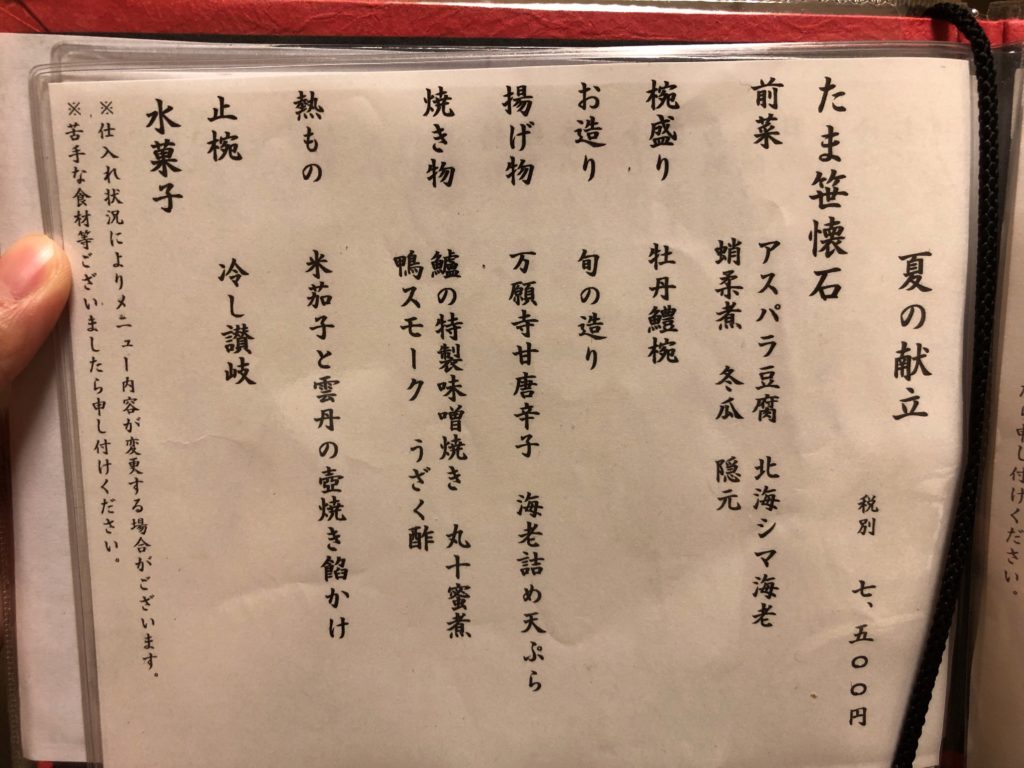 夏の献立
税別 七、五〇〇円
たま笹懐石
前菜 アスパラ豆腐 北海シマ海老
蛸柔煮 冬瓜 隠元
椀盛り 牡丹鱧椀
お造り 旬の造り
揚げ物 万願寺甘唐辛子 海老詰め天ぷら
焼き物 鱸の特製味噌焼き 丸十蜜煮
鴨スモーク うざく酢
熱もの 米茄子と雲丹の壺焼き餡かけ
止椀 冷し讃岐
水菓子
※仕入れ状況によりメニュー内容が変更する場合がございます。
※苦手な食材等ございましたら申し付けください。